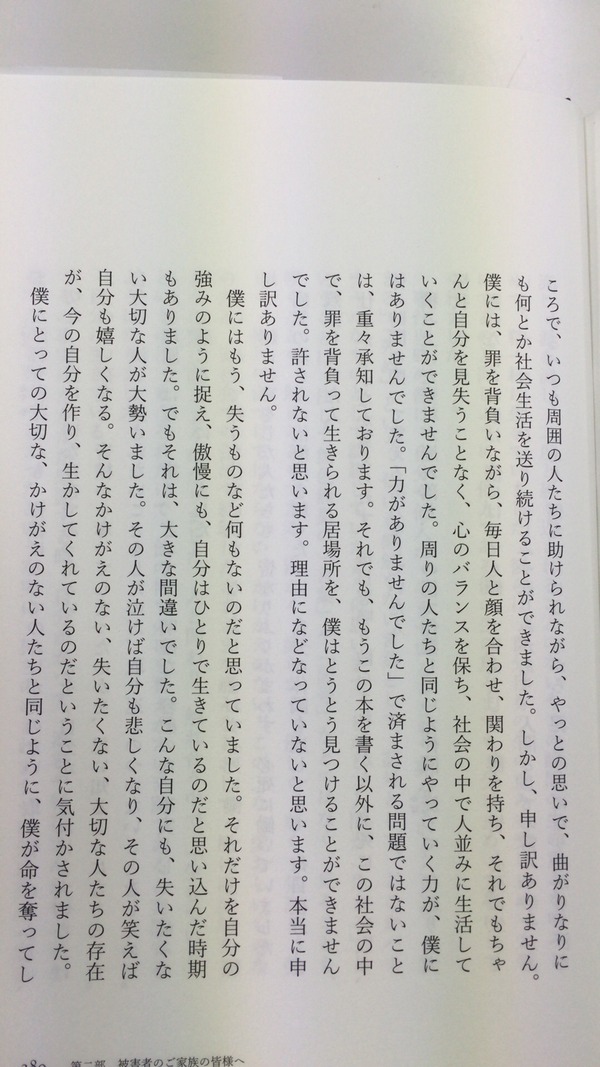 ころで、いつも周囲の人たちに助けられながら、やっとの思いで、曲がりなりに
も何とか社会生活を送り続けることができました。しかし、申し訳ありません。
僕には、罪を背負いながら、毎日人と顔を合わせ、関わりを持ち、それでもちゃ
んと自分を見失うことなく、心のバランスを保ち、社会の中で人並みに生活して
いくことができませんでした。周りの人たちと同じようにやっていく力が、僕に
はありませんでした。「力がありませんでした」で済まされる問題ではないこと
は、重々承知しております。それでも、もうこの本を書く以外に、この社会の中
で、罪を背負って生きられる居場所を、僕はとうとう見つけることができません
でした。許されないと思います。理由になどなっていないと思います。本当に申
し訳ありません。
僕にはもう、失うものなど何もないのだと思っていました。それだけを自分の
強みのように捉え、傲慢にも、自分はひとりで生きているのだと思い込んだ時期
もありました。でもそれは、大きな間違いでした。こんな自分にも、失いたくな
い大切な人が大勢いました。その人が泣けば自分も悲しくなり、その人が笑えば
自分も嬉しくなる。そんなかけがえのない、失いたくない、大切な人たちの存在
が、今の自分を作り、生かしてくれているのだということに気付かされました。
僕にとっての大切な、かけがえのない人たちと同じように、僕が命を奪ってし
289 第二部 被害者のご家族の皆様へ